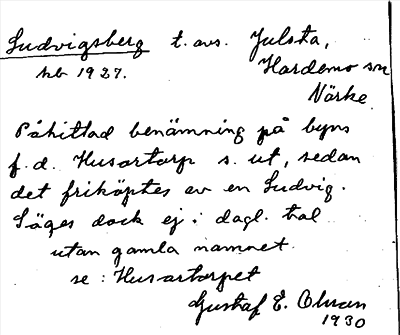 Ludvigsberg t. avs. Julsta,
hb 1927. Hardemo sn
Närke
Påhittad benämning på byns
f.d. Husartorp s. ut, sedan
det friköptes av en Ludvig.
Säges dock ej i dagl. tal
utan gamla namnet
se: Husartorpet
Gustaf E. Olsson
1930